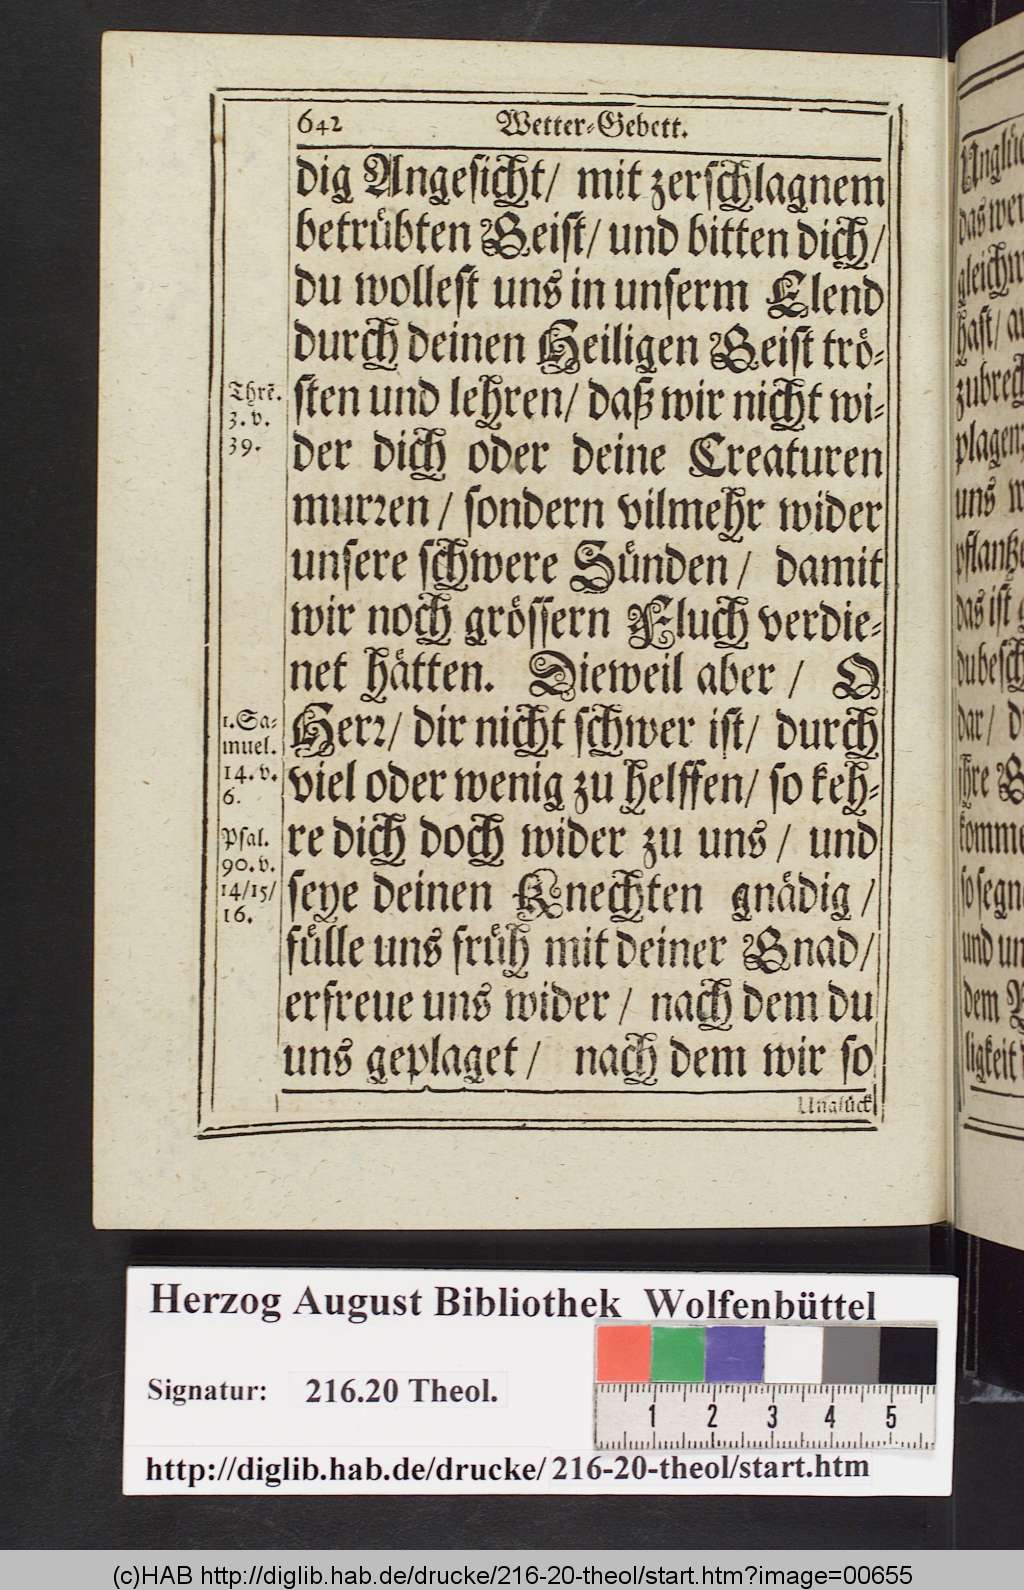 642 Wetter-Gebett.
dig Angesicht/ mit zerschlagnem
betrübten Geist/ und bitten dich/
du wollest uns in unserm Elend
durch deinen Heiligen Geist trö-
sten und lehren/ daß wir nicht wi-
der dich oder deine Creaturen
murren / sondern vilmehr wider
unsere schwere Sünden / damit
wir noch grössern Fluch verdie-
net hätten. Dieweil aber / O
Herr/ dir nicht schwer ist/ durch
viel oder wenig zu helffen/ so keh-
re dich doch wider zu uns / und
seye deinen Knechten gnädig /
fülle uns früh mit deiner Gnad/
erfreue uns wider / nach dem du
uns geplaget / nach dem wir so
Unglück
Thrē.
3. v.
39.
1. Sa-
muel.
14. v.
6.
Psal.
90. v.
14/15/
16.
Herzog August Bibliothek Wolfenbüttel
Signatur: 216.20 Theol.
1 2 3 4 5
http://diglib.hab.de/drucke/ 216-20-theol/start.htm
(c)HAB http://diglib.hab.de/drucke/216-20-theol/start.htm?image=00655